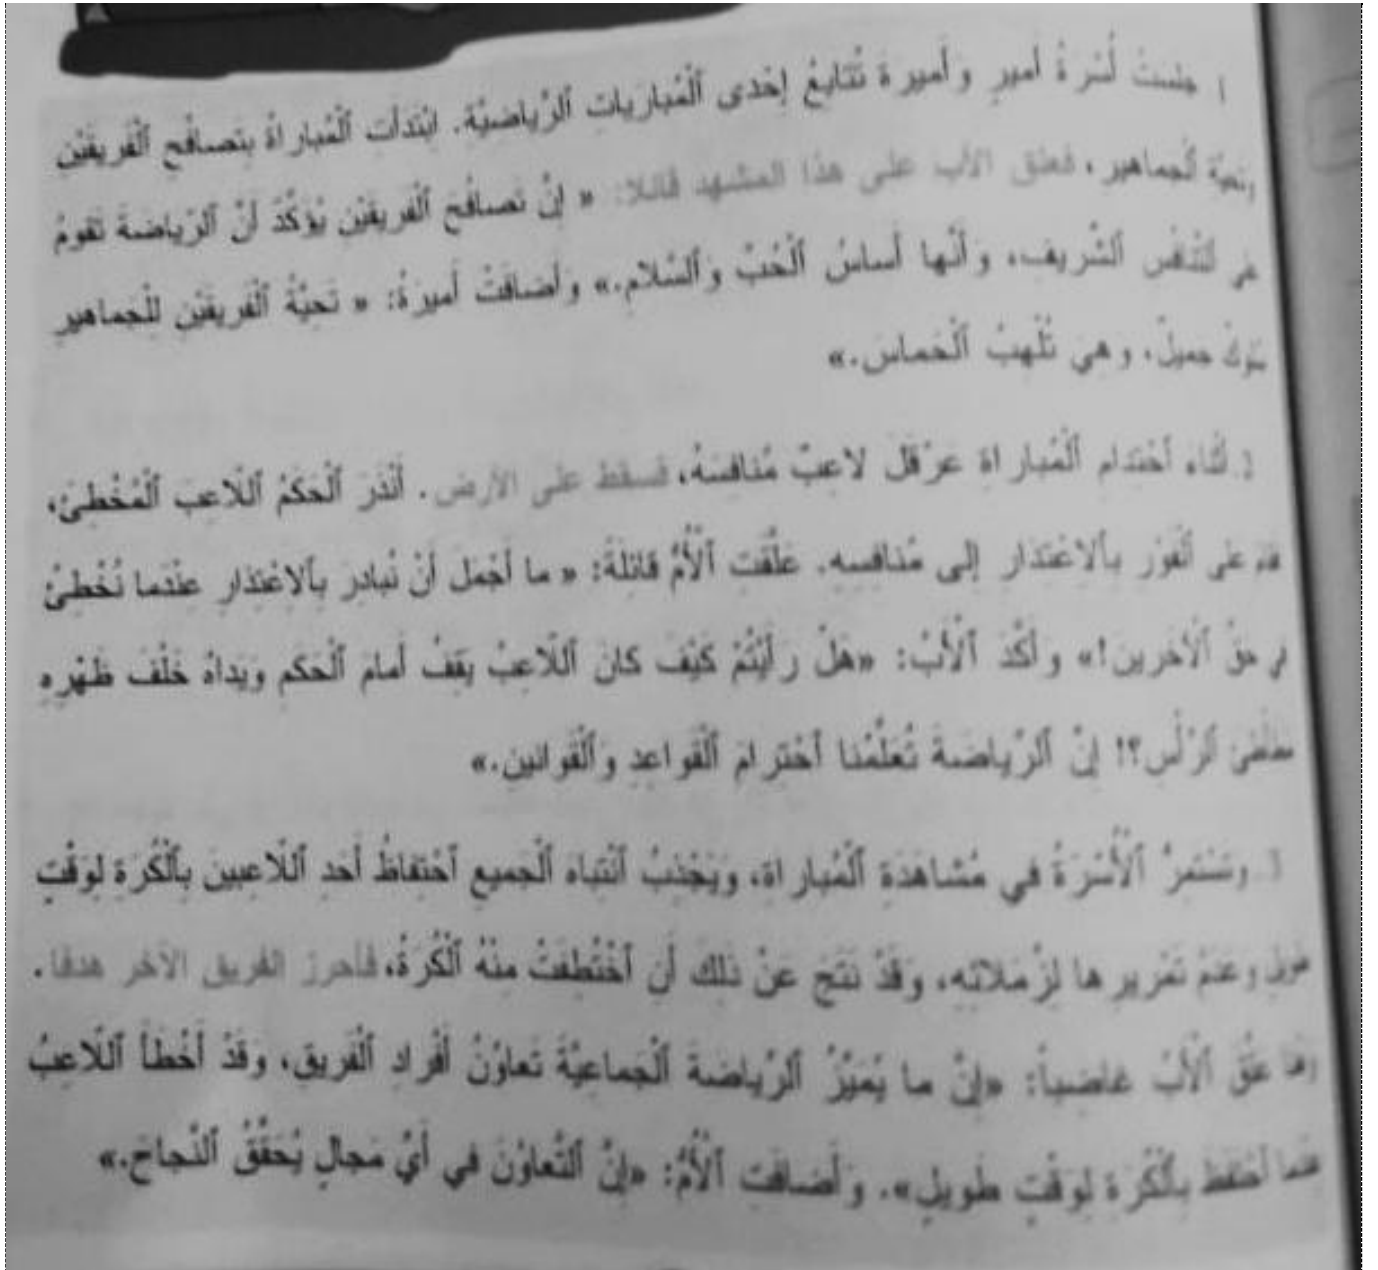 1 جلستْ أُسْرةُ أمير وَأميرة تُتابِعُ إِحْدى ٱلْمُبارَياتِ ٱلرِّياضيَّةِ. ابْتَدَأَتِ ٱلْمُباراةُ بِتَصافُحِ ٱلْفَريقَيْنِ
وتحيّة ٱلجماهير، فعلق الأب على هذا المشهد قائلا: « إِنَّ تَصافُحَ ٱلْفَريقَيْنِ يُؤَكِّدُ أَنَّ ٱلرِّياضَةَ تَقومُ
على ٱلتّنافُس ٱلشَّريفِ، وَأَنَّها أَساسُ ٱلْحُبِّ وَٱلسَّلامِ.» وَأَضافَتْ أَميرَةُ: « تَحِيَّةُ ٱلْفَريقَيْنِ لِلْجَماهيرِ
سُلوكٌ جميلٌ، وهِيَ تُلْهِبُ ٱلْحَماسَ.»
2. أثْناء ٱحْتِدامِ ٱلْمُباراةِ عَرْقَلَ لاعِبٌ مُنافِسَهُ، فسقط على الأرض. أَنْذَرَ ٱلْحَكَمُ ٱللّاعِبَ ٱلْمُخْطِئَ،
فقام على ٱلْفَوْرِ بِٱلِاعْتِذارِ إِلى مُنافِسِهِ. عَلَّقَتِ ٱلْأُمُّ قائِلَةً: « ما أَجْمَلَ أَنْ نُبادِرَ بِٱلِاعْتِذارِ عِنْدَما نُخْطِئُ
في حَقِّ ٱلْآخَرينَ!» وَأَكَّدَ ٱلْأَبُ: «هَلْ رَأَيْتُمْ كَيْفَ كانَ ٱللّاعِبُ يَقِفُ أَمامَ ٱلْحَكَمِ وَيَداهُ خَلْفَ ظَهْرِهِ
مطأطئ ٱلرَّأْسِ؟! إِنَّ ٱلرِّياضَةَ تُعَلِّمُنا ٱحْتِرامَ ٱلْقَواعِدِ وَٱلْقَوانينِ.»
3. وتَسْتَمِرُّ ٱلْأُسْرَةُ في مُشاهَدَةِ ٱلْمُباراةِ، وَيَجْذِبُ ٱنْتِباهَ ٱلْجَميعِ ٱحْتِفاظُ أَحَدِ ٱللّاعِبينَ بِٱلْكُرَةِ لِوَقْتٍ
طَويلٍ وعَدَمُ تَمْريرِها لِزُمَلائِهِ، وَقَدْ نَتَجَ عَنْ ذلِكَ أَنِ ٱخْتُطِفَتْ مِنْهُ ٱلْكُرَةُ، فأحرز الفريق الآخر هدفا.
وهُنا علَّقَ ٱلْأَبُ غاضِباً: «إِنَّ ما يُمَيِّزُ ٱلرِّياضَةَ ٱلْجَماعِيَّةَ تَعاوُنُ أَفْرادِ ٱلْفَريقِ، وَقَدْ أَخْطَأَ ٱللّاعِبُ
عندما ٱحْتَفَظَ بِٱلْكُرَةِ لِوَقْتٍ طَويلٍ». وَأَضافَتِ ٱلْأُمُّ: «إِنَّ ٱلتَّعاوُنَ في أَيِّ مَجالٍ يُحَقِّقُ ٱلنَّجاحَ.»